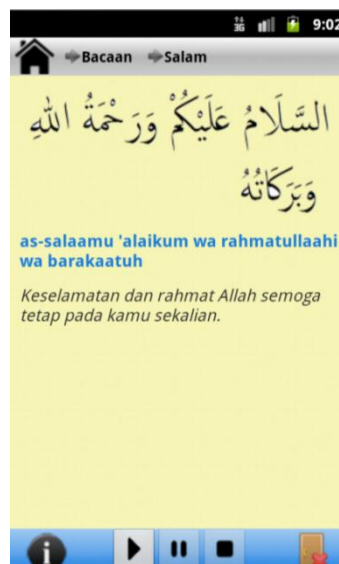 3G 9:02
Bacaan Salam
السَّلَامُ عَلَيْكُمْ وَرَحْمَةُ اللهِ
وَبَرَكَاتُهُ
as-salaamu 'alaikum wa rahmatullaahi
wa barakaatuh
Keselamatan dan rahmat Allah semoga
tetap pada kamu sekalian.
i